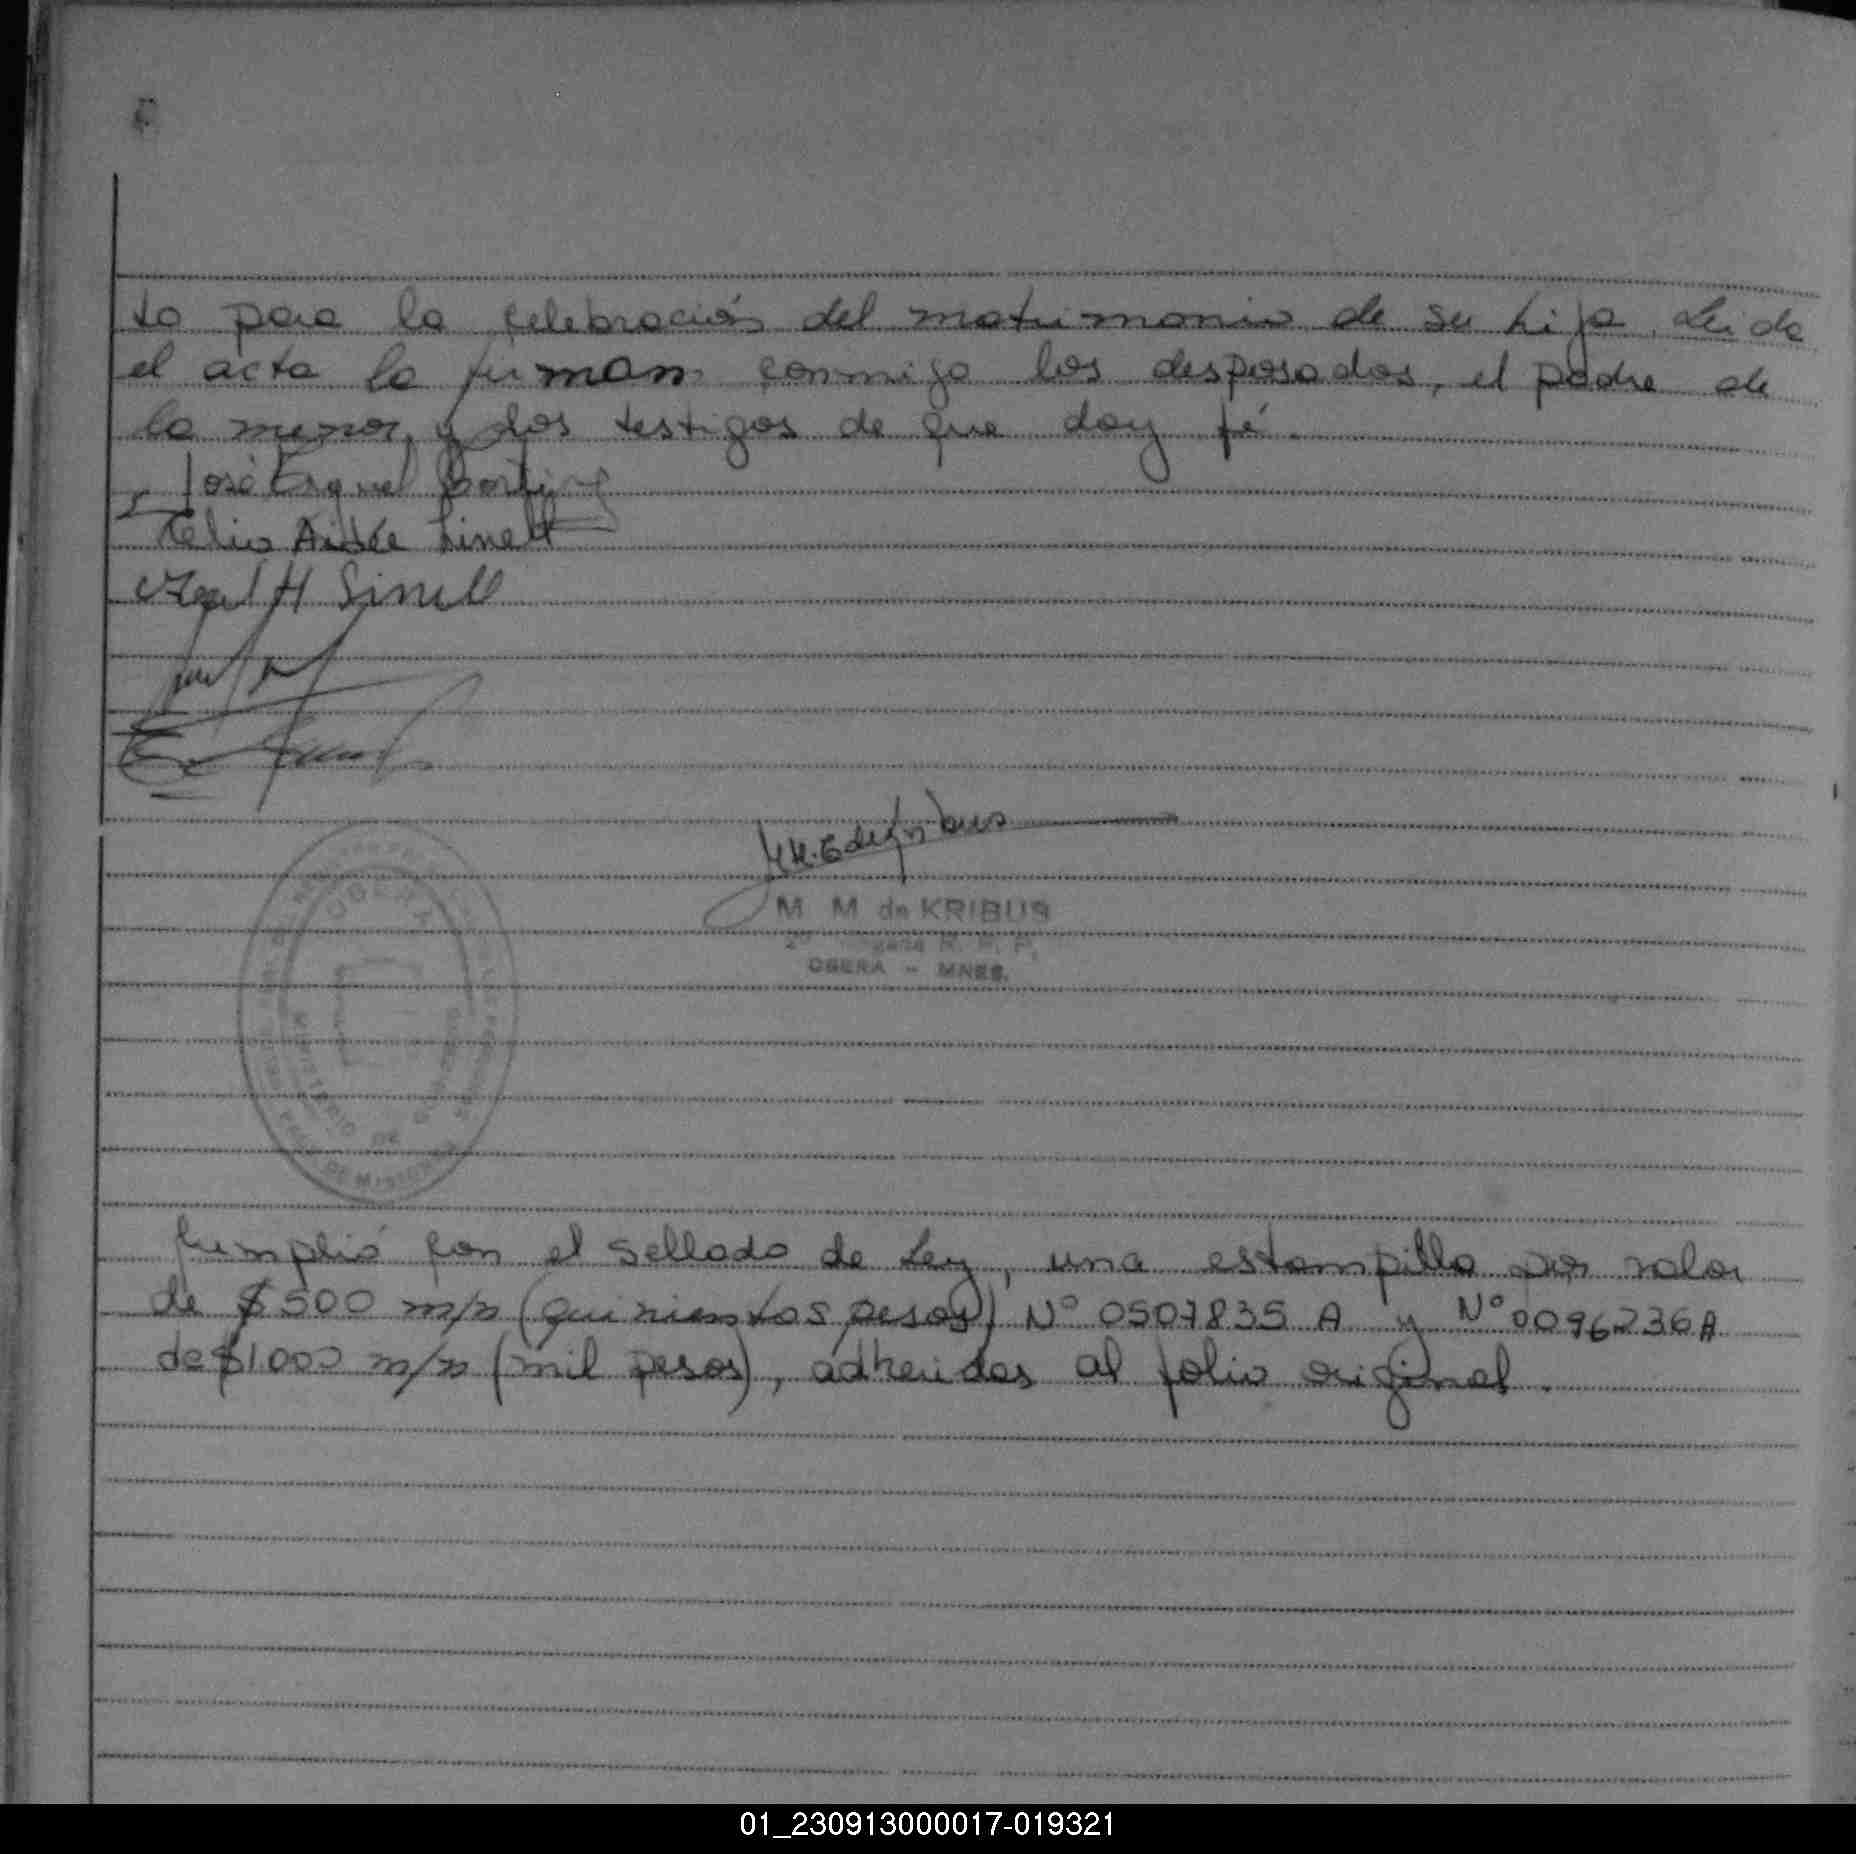 to para la celebración del matrimonio de su hija. Leida
el acta la firman conmigo los desposados, el padre de
la menor, y los testigos de que doy fé.
José Exquel
Aidée Linell
H Linell
M M de KRIBUS
R. P. P.
OBERA - MNES.
OBERA
MINISTERIO DE GOBIERNO
DE MISIONES
Cumplió con el sellado de Ley, una estampilla por valor
de $ 500 m/n (quinientos pesos) Nº 0507835 A y Nº 0096236A
de $1000 m/n (mil pesos), adheridas al folio original.
01_230913000017-019321